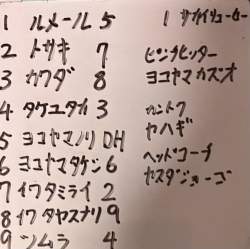 1 ルメール 5
2 トサキ 7
3 カワダ 8
4 タケユタカ 3
5 ヨコヤマノリ DH
6 ヨコヤマタケシ 6
7 イワタミライ 2
8 イワタヤスナリ 9
9 ツムラ 4
1 サカイリューセー
ピンチヒッター
ヨコヤマカズオ
カントク
ヤハギ
ヘッドコーチ
ヤスダショーゴ